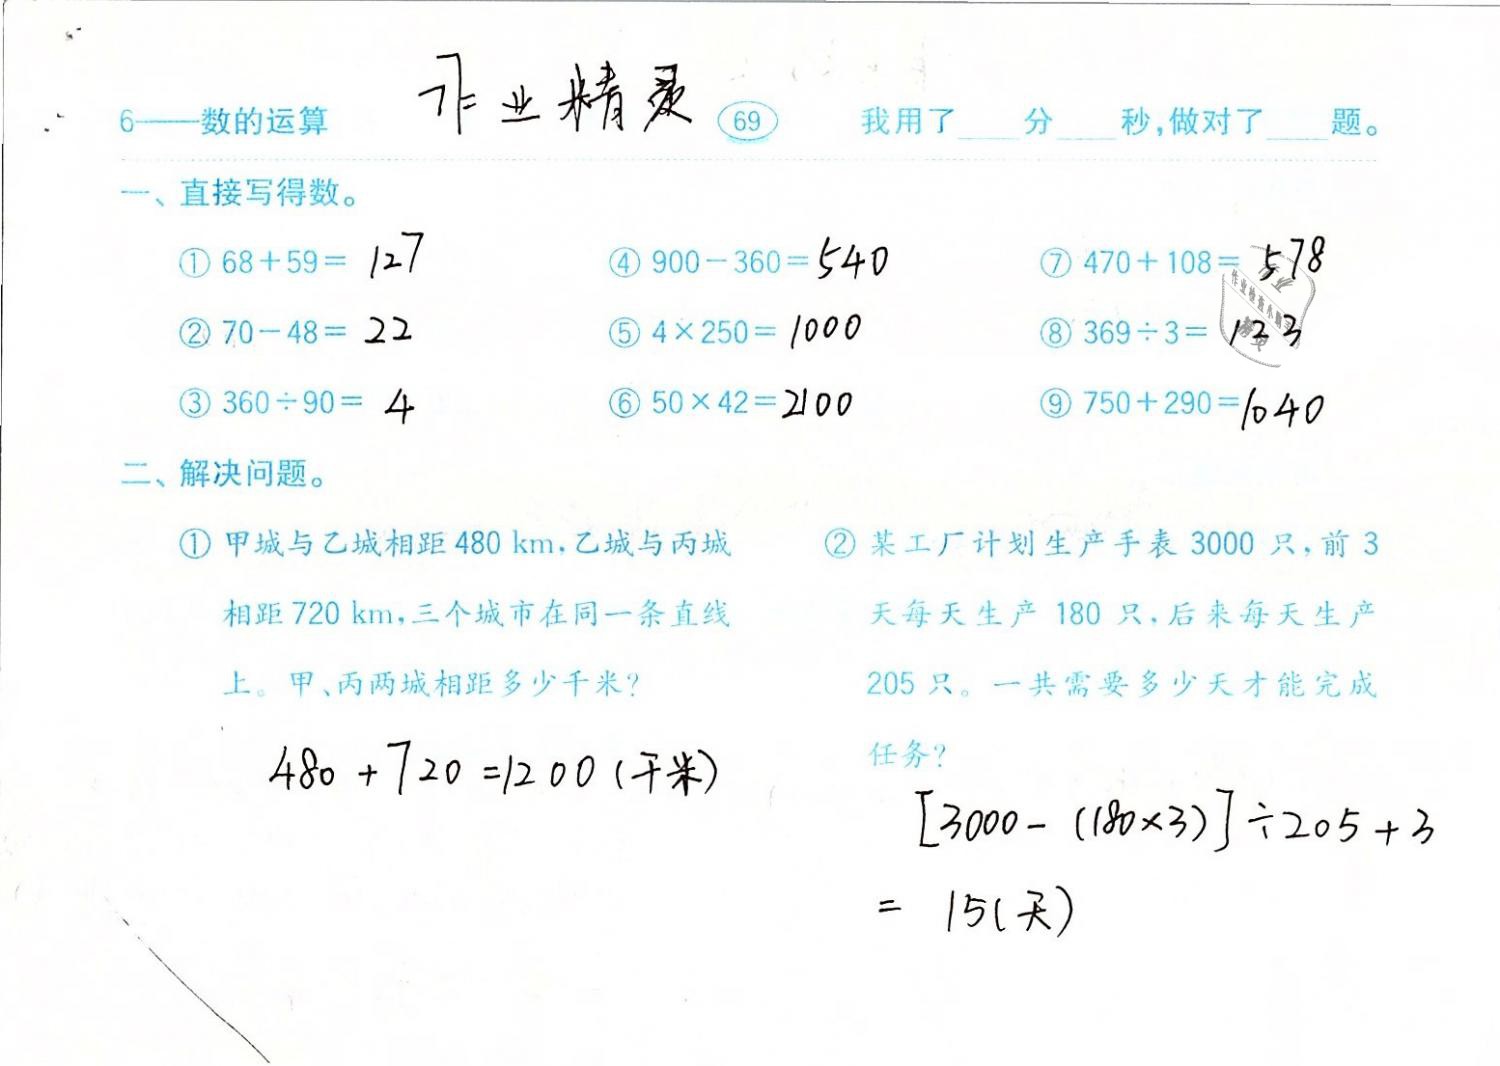 作业精灵
6——数的运算 69 我用了____分____秒,做对了____题。
一、直接写得数。
① 68+59= 127 ④ 900-360=540 ⑦ 470+108=578
② 70-48= 22 ⑤ 4×250=1000 ⑧ 369÷3= 123
③ 360÷90= 4 ⑥ 50×42=2100 ⑨ 750+290=1040
二、解决问题。
① 甲城与乙城相距480 km,乙城与丙城
相距720 km,三个城市在同一条直线
上。甲、丙两城相距多少千米?
480+720=1200(千米)
② 某工厂计划生产手表3000只,前3
天每天生产180只,后来每天生产
205只。一共需要多少天才能完成
任务?
[3000-(180×3)]÷205+3
= 15(天)